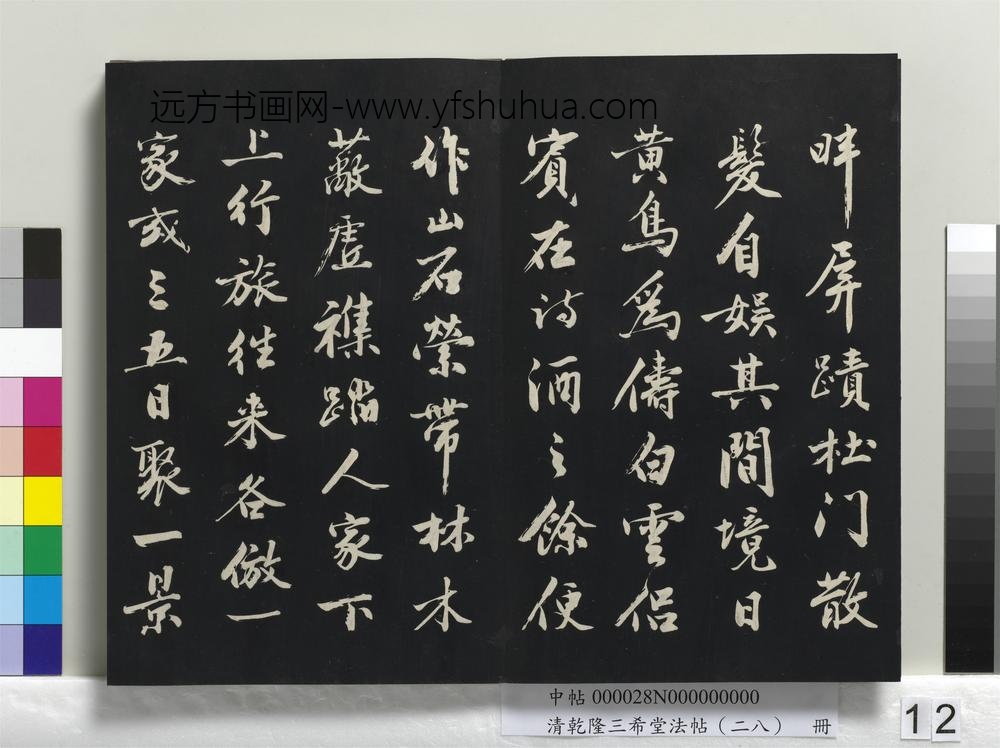 远方书画网-www.yfshuhua.com
畔屏蹟杜门散
髮自娱其間境日
黄鳥爲儔白雲侣
賓在诗酒之餘便
作山石縈帶林木
蔽虚襍踏人家下
上行旅往来各倣一
家或三五日聚一景
中帖 000028N000000000
清乾隆三希堂法帖(二八) 冊
12